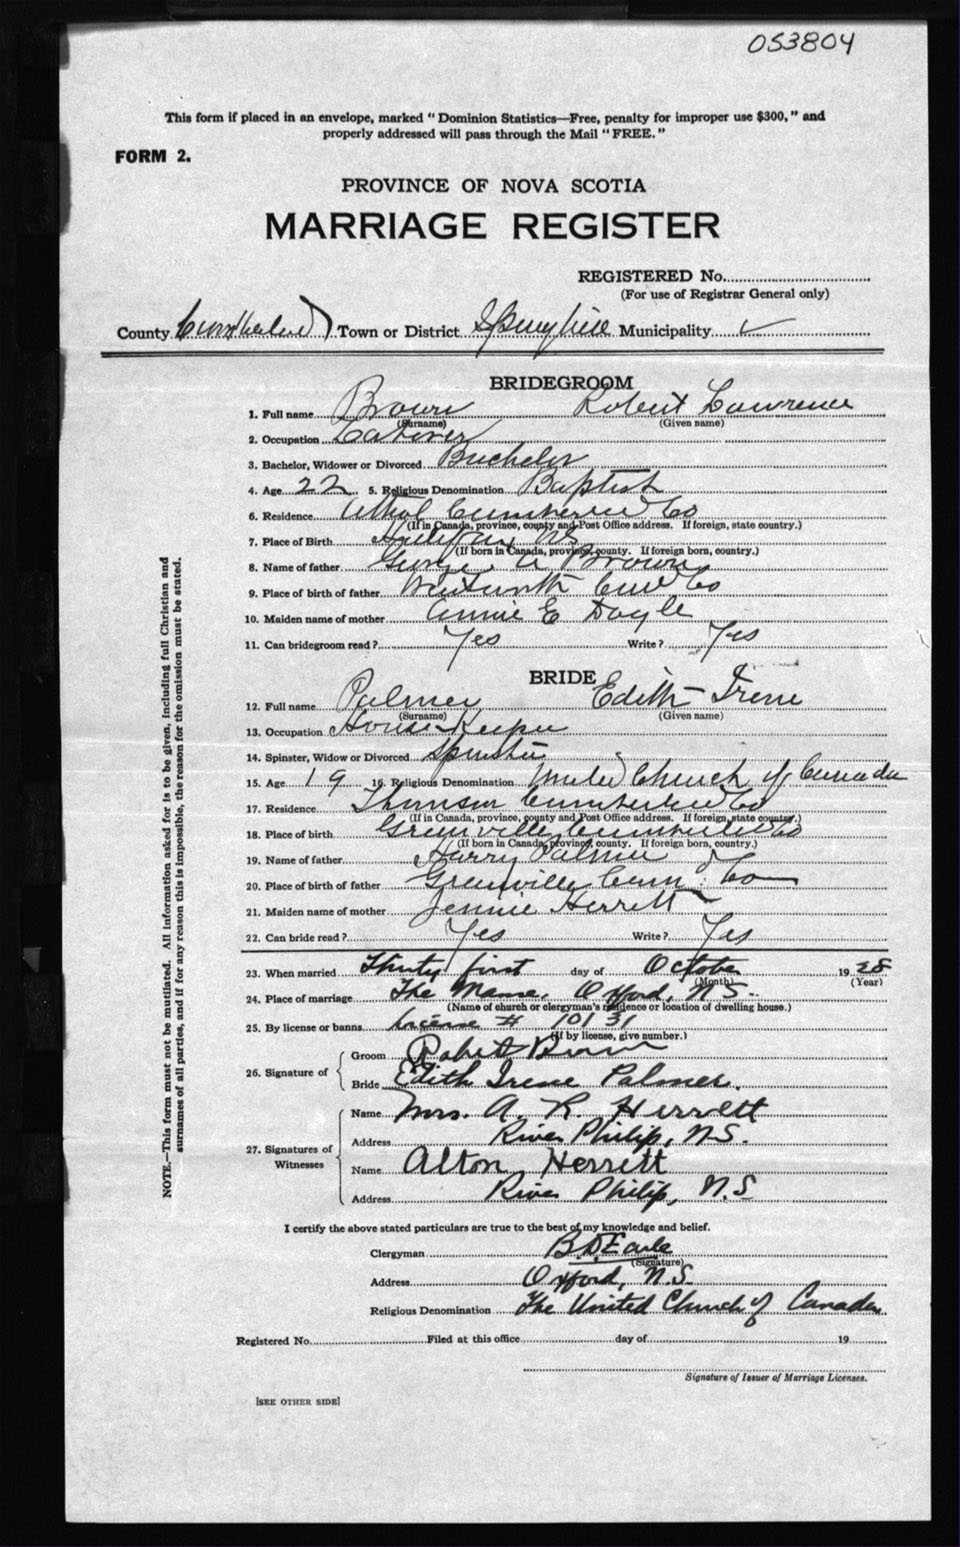 053804
This form if placed in an envelope, marked "Dominion Statistics—Free, penalty for improper use $300," and
properly addressed will pass through the Mail "FREE."
FORM 2.
PROVINCE OF NOVA SCOTIA
MARRIAGE REGISTER
REGISTERED No.
(For use of Registrar General only)
County Cumberland Town or District Springhill Municipality ✓
BRIDEGROOM
1. Full name Brown Robert Lawrence
(Surname) (Given name)
2. Occupation Laborer
3. Bachelor, Widower or Divorced Bachelor
4. Age 22 5. Religious Denomination Baptist
6. Residence Athol Cumberland Co
(If in Canada, province, county and Post Office address. If foreign, state country.)
7. Place of Birth Halifax NS
(If born in Canada, province, county. If foreign born, country.)
8. Name of father George A Brown
9. Place of birth of father Wentworth Cum Co
10. Maiden name of mother Annie E Doyle
11. Can bridegroom read? Yes Write? Yes
BRIDE
12. Full name Palmer Edith Irene
(Surname) (Given name)
13. Occupation House Keeper
14. Spinster, Widow or Divorced Spinster
15. Age 19 16. Religious Denomination United Church of Canada
17. Residence Thomson Cumberland Co
(If in Canada, province, county and Post Office address. If foreign, state country.)
18. Place of birth Greenville Cumberland Co
(If born in Canada, province, county. If foreign born, country.)
19. Name of father Harry Palmer
20. Place of birth of father Greenville Cum. Co
21. Maiden name of mother Jennie Herrett
22. Can bride read? Yes Write? Yes
23. When married Thirty first day of October 1928
(Month) (Year)
24. Place of marriage The Manse, Oxford, N.S.
(Name of church or clergyman's residence or location of dwelling house.)
25. By license or banns License # 10131
(If by license, give number.)
26. Signature of
Groom Robert Brown
Bride Edith Irene Palmer.
27. Signatures of Witnesses
Name Mrs. A. R. Herrett
Address River Philip, N.S.
Name Alton Herrett
Address River Philip, N.S
I certify the above stated particulars are true to the best of my knowledge and belief.
Clergyman B.D. Earle
(Signature)
Address Oxford, N.S.
Religious Denomination The United Church of Canada
Registered No. Filed at this office day of 19
Signature of Issuer of Marriage Licenses.
[SEE OTHER SIDE]
NOTE.—This form must not be mutilated. All information asked for is to be given, including full Christian and
surnames of all parties, and if for any reason this is impossible, the reason for the omission must be stated.